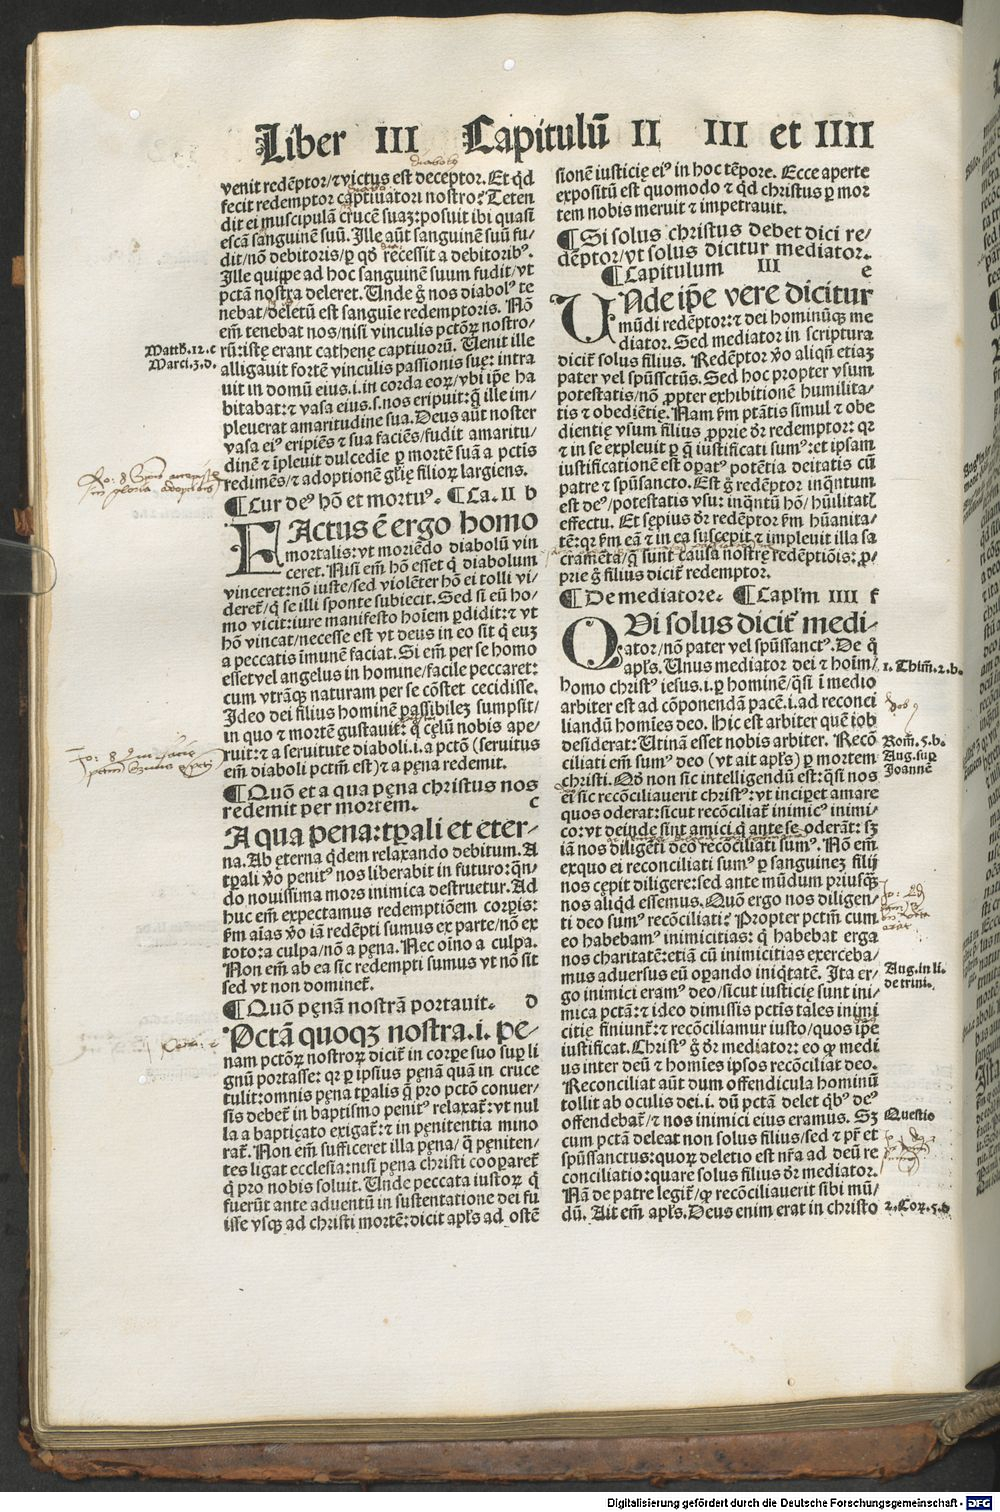 Liber III Capitulū II III et IIII
venit redēptor/⁊ victus est deceptor. Et qd
fecit redemptor captiuatori nostro? Teten
dit ei muscipulā crucē suaꝫ: posuit ibi quasi
escā sanguinē suū. Ille aūt sanguinē suū fu/
dit/nō debitoris/ꝑ qd recessit a debitoribꝰ.
Ille quippe ad hoc sanguinē suum fudit/vt
pctā nostra deleret. Unde ḡ nos diabolꝰ te
nebat/deletū est sanguie redemptoris. Nō
em̄ tenebat nos/nisi vinculis pctōꝝ nostro/
rū: iste erant cathene captiuorū. Uenit ille
alligauit fortē vinculis passionis sue: intra
uit in domū eius .i. in corda eoꝝ/vbi ip̄e ha
bitabat: ⁊ vasa eius .s. nos eripuit: q̄ ille im/
pleuerat amaritudine sua. Deus aūt noster
vasa eiꝰ eripiēs ⁊ sua faciēs/fudit amaritu/
dinē ⁊ īpleuit dulcedie ꝑ mortē suā a pctis
redimēs/⁊ adoptionē gl̄ie filioꝝ largiens.
¶ Cur deꝰ hō et mortuꝰ. ¶ Ca. II b
FActus ē ergo homo
mortalis: vt moriēdo diabolū vin
ceret. Nisi em̄ hō esset q̄ diabolum
vinceret: nō iuste/sed violēter hō ei tolli vi/
deret̄/q̄ se illi sponte subiecit. Sed si eū ho/
mo vicit: iure manifesto hoīem ꝑdidit: ⁊ vt
hō vincat/necesse est vt deus in eo sit q̄ euꝫ
a peccatis īmunē faciat. Si em̄ per se homo
esset vel angelus in homine/facile peccaret:
cum vtrāqꝫ naturam per se cōstet cecidisse.
Ideo dei filius hominē passibileꝫ sumpsit/
in quo ⁊ mortē gustauit: q̄ celū nobis ape/
ruit: ⁊ a seruitute diaboli .i. a pctō (seruitus
em̄ diaboli pctm̄ est) ⁊ a pena redemit.
¶ Quō et a qua pena christus nos
redemit per mortem. c
A qua pena: tꝑali et eter/
na. Ab eterna qdem relaxando debitum. A
tꝑali v̄o penitꝰ nos liberabit in futuro: qn̄/
do nouissima mors inimica destruetur. Ad
huc em̄ expectamus redemptiōem corꝑis:
fm̄ aīas v̄o iā redēpti sumus ex parte/nō ex
toto: a culpa/nō a pena. Nec oīno a culpa.
Non em̄ ab ea sic redempti sumus vt nō sit
sed vt non dominet̄.
¶ Quō penā nostrā portauit. d
Pctā quoqꝫ nostra .i. pe/
nam pctōꝝ nostroꝝ dicit̄ in corꝑe suo suꝑ li
gnū portasse: qꝛ ꝑ ipsius penā quā in cruce
tulit: omnis pena tꝑalis q̄ pro pctō conuer/
sis debet̄ in baptismo penitꝰ relaxat̄: vt nul
la a baptiçato exigat̄: ⁊ in penitentia mino
rat̄. Non em̄ sufficeret illa pena/q̄ peniten/
tes ligat ecclesia: nisi pena christi cooꝑaret̄
q̄ pro nobis soluit. Unde peccata iustoꝝ q̄
fuerūt ante aduentū in sustentatione dei fu
isse vsqꝫ ad christi mortē: dicit apl̄s ad ostē
Matth. 12. c
Marci. 3. d.
sionē iusticie eiꝰ in hoc tēpore. Ecce aperte
expositū est quomodo ⁊ qd christus ꝑ mor
tem nobis meruit ⁊ impetrauit.
¶ Si solus christus debet dici re/
dēptor/vt solus dicitur mediator.
¶ Capitulum III e
UNde ip̄e vere dicitur
mūdi redēptor: ⁊ dei hominūqꝫ me
diator. Sed mediator in scriptura
dicit̄ solus filius. Redēptor v̄o aliqn̄ etiaꝫ
pater vel spūssctūs. Sed hoc propter vsum
potestatis/nō ꝓpter exhibitionē humilita/
tis ⁊ obediētie. Nam fm̄ ptātis simul ⁊ obe
dientie vsum filius ꝓprie dr̄ redemptor: qꝛ
⁊ in se expleuit ꝑ q̄ iustificati sumꝰ: et ipsam
iustificationē est oꝑatꝰ potētia deitatis cū
patre ⁊ spūsancto. Est ḡ redēptor inqntum
est deꝰ/potestatis vsu: inqntū hō/hūilitatꝭ
effectu. Et sepius dr̄ redēptor fm̄ hūanita/
tē: qꝛ fm̄ eā ⁊ in ea suscepit ⁊ impleuit illa sa
cramēta/q̄ sunt causa nostre redēptiōis: ꝓ/
prie ḡ filius dicit̄ redemptor.
¶ De mediatore. ¶ Capl̄m IIII f
QVi solus dicit̄ medi/
ator/nō pater vel spūssanctꝰ. De q̄
apl̄s. Unus mediator dei ⁊ hoīm/
homo christꝰ iesus .i. ꝑ hominē/qsi ī medio
arbiter est ad cōponendā pacē .i. ad reconci
liandū homīes deo. Hic est arbiter quē iob
desiderat: Utinā esset nobis arbiter. Recō
ciliati em̄ sumꝰ deo (vt ait apl̄s) ꝑ mortem
christi. Qd non sic intelligendū est: qsi nos
ei sic recōciliauerit christꝰ: vt inciꝑet amare
quos oderat: sicut recōciliat̄ inimicꝰ inimi/
co: vt deinde sint amici q̄ ante se oderāt: sꝫ
iā nos diligēti deo recōciliati sumꝰ. Nō em̄
exquo ei reconciliati sumꝰ ꝑ sanguineꝫ filij
nos cepit diligere: sed ante mūdum priusqꝫ
nos aliqd essemus. Quō ergo nos diligen/
ti deo sumꝰ recōciliati? Propter pctm̄ cum
eo habebamꝰ inimicitias: q̄ habebat erga
nos charitatē: etiā cū inimicitias exerceba/
mus aduersus eū oꝑando iniqtatē. Ita er/
go inimici eramꝰ deo/sicut iusticie sunt ini/
mica pctā: ⁊ ideo dimissis pctis tales inimi
citie finiunt̄: ⁊ recōciliamur iusto/quos ip̄e
iustificat. Christꝰ ḡ dr̄ mediator: eo ꝙ medi
us inter deū ⁊ homīes ipsos recōciliat deo.
Reconciliat aūt dum offendicula hominū
tollit ab oculis dei .i. dū pctā delet qbꝰ deꝰ
offendebat̄/⁊ nos inimici eius eramus. Sꝫ
cum pctā deleat non solus filius/sed ⁊ pr̄ et
spūssanctus: quoꝝ deletio est nr̄a ad deū re
conciliatio: quare solus filius dr̄ mediator.
Nā de patre legit̄/ꝙ recōciliauerit sibi mū/
dū. Ait em̄ apl̄s. Deus enim erat in christo
1. Thim̄. 2. b.
Rom̄. 5. b.
Aug. suꝑ
Joannē
Aug. in li.
de trini.
Questio
2. Coꝝ. 5. d
Digitalisierung gefördert durch die Deutsche Forschungsgemeinschaft - DFG